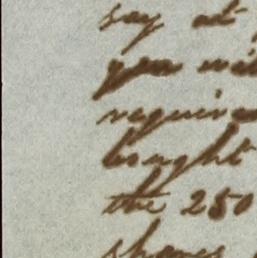 say at
you wil
require
bought
the 250
shares